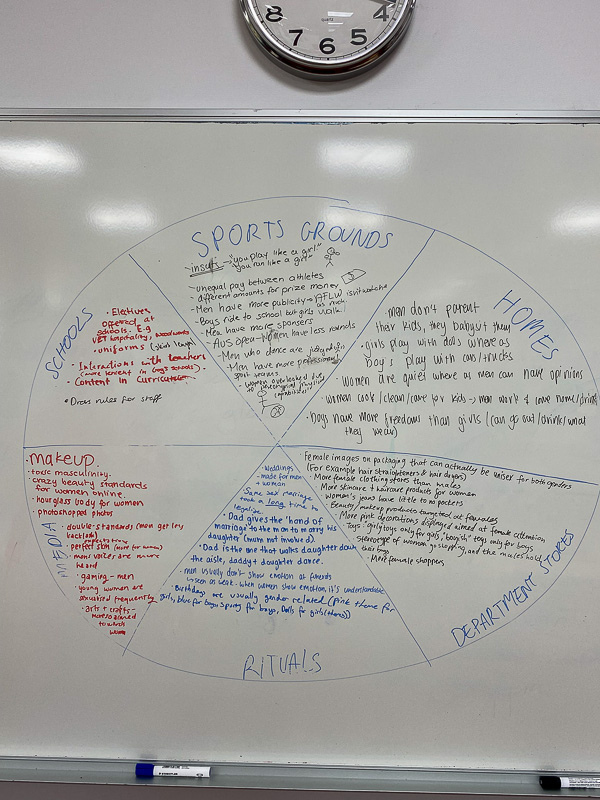 8
7
6
5
4
SPORTS GROUNDS
insults → "you play like a girl"
"you run like a girl"
· unequal pay between athletes
· different amounts for prize money
· Men have more publicity → AFLW isn't watched
as much
· Boys ride to school but girls walk
· Men have more sponsers
· Aus Open - Women have less rounds
· Men who dance are judged
· Men have more
HOMES
· men don't parent
their kids, they babysit them
· girls play with dolls whereas
boys play with cars/trucks
· Women are quiet where as men can have opinions
· Women cook/clean/care for kids → men work & come home/drink
· boys have more freedoms than girls (can go out/drink/what
they wear)
SCHOOLS
· Electives
offered at
schools. E.g
VET hospitality, woodworks
· uniforms
· Interactions with teachers
(more lenient in boy's schools).
· Content in curriculum
· Dress rules for staff
MEDIA
· Makeup
· toxic masculinity.
· crazy beauty standards
for women online.
· hour glass body for women
· photoshopped photos
· double-standards (men get less
backlash)
· perfect skin (more for women)
· mens voices are more
heard
· gaming - men
· young women are
sexualised frequently
· arts + crafts -
more so aimed
towards
women
RITUALS
· Weddings
- made for men +
woman
Same sex marriage
took a long time to
legalise
· Dad gives the 'hand of
marriage' to the man to marry his
daughter (mum not involved).
· Dad is the one that walks daughter down
the aisle, daddy + daughter dance.
· men usually don't show emotion at funerals
→ seen as weak. When women show emotion, it's understandable
· Birthdays are usually gender related (Pink theme for
girls, blue for boys, sporty for boys, Dolls for girls (theres))
DEPARTMENT STORES
Female images on packaging that can actually be unisex for both genders
(For example hair straighteners & hair dryers)
· More female clothing stores than males
· More skincare + haircare products for women
· Women's jeans have little to no pockets
· Beauty/makeup products targeted at females
· More pink decorations displayed aimed at female attention
· Toys: 'girly' toys only for girls, "boyish" toys only for boys
· Stereotype of women go shopping, and the males hold
their bags
· More female shoppers